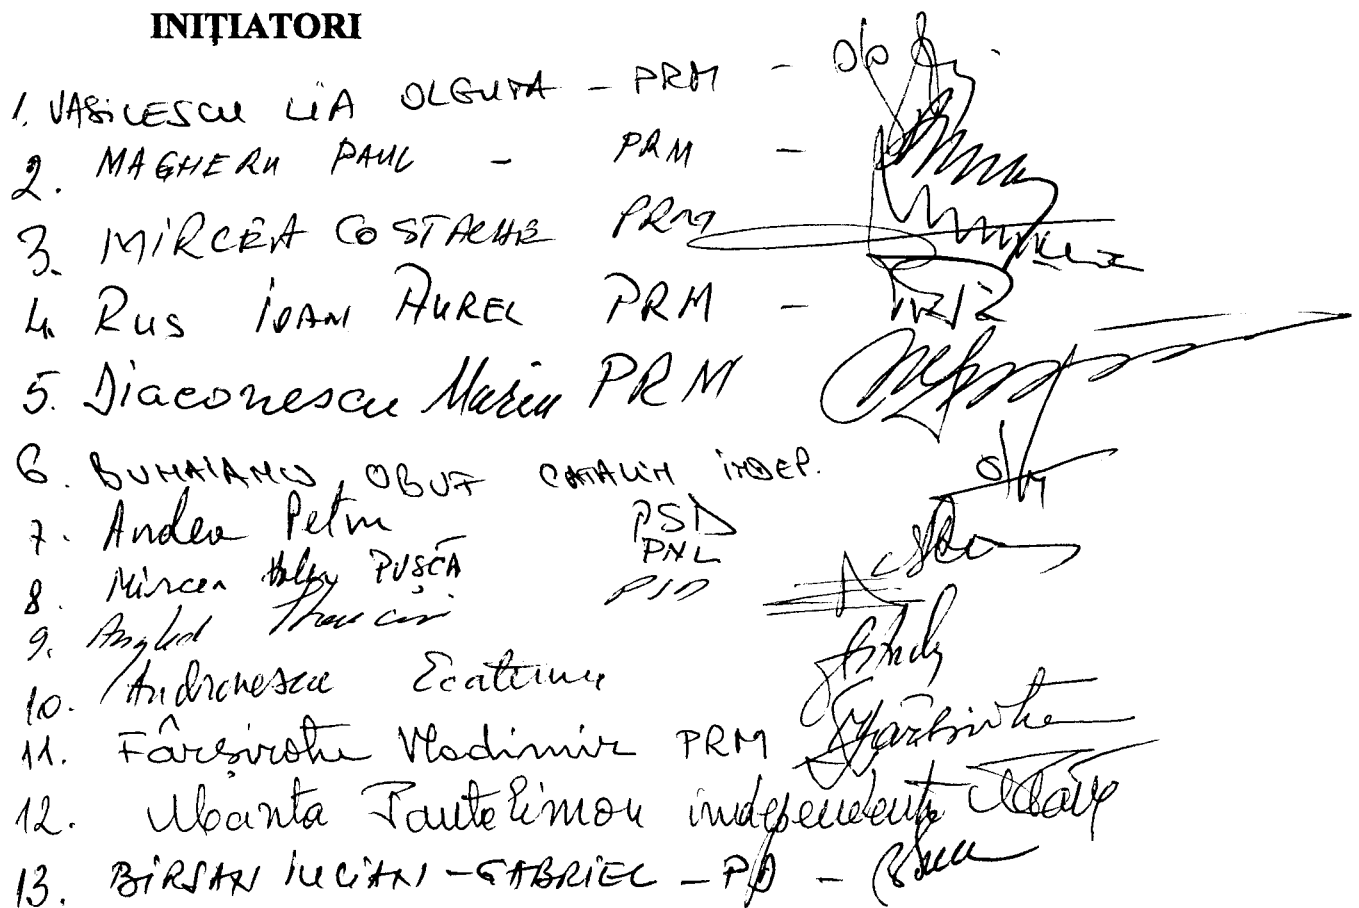 INIȚIATORI
1. VASILESCU LIA OLGUTA - PRM -
2. MAGHERU PAUL - PRM -
3. MIRCEA COSTACHE PRM
4. RUS IOAN AUREL PRM -
5. Diaconescu Maria PRM
6. BUHAIANU OBUF CATALIN INDEP.
7. Andea Petru PSD
8. Mircea PUȘCĂ PNL
9. Anghel PSD
10. Andronescu Ecaterina
11. Fârșirotu Vladimir PRM
12. Manta Pantelimon independent
13. BÎRSAN IULIAN - GABRIEL - PD -